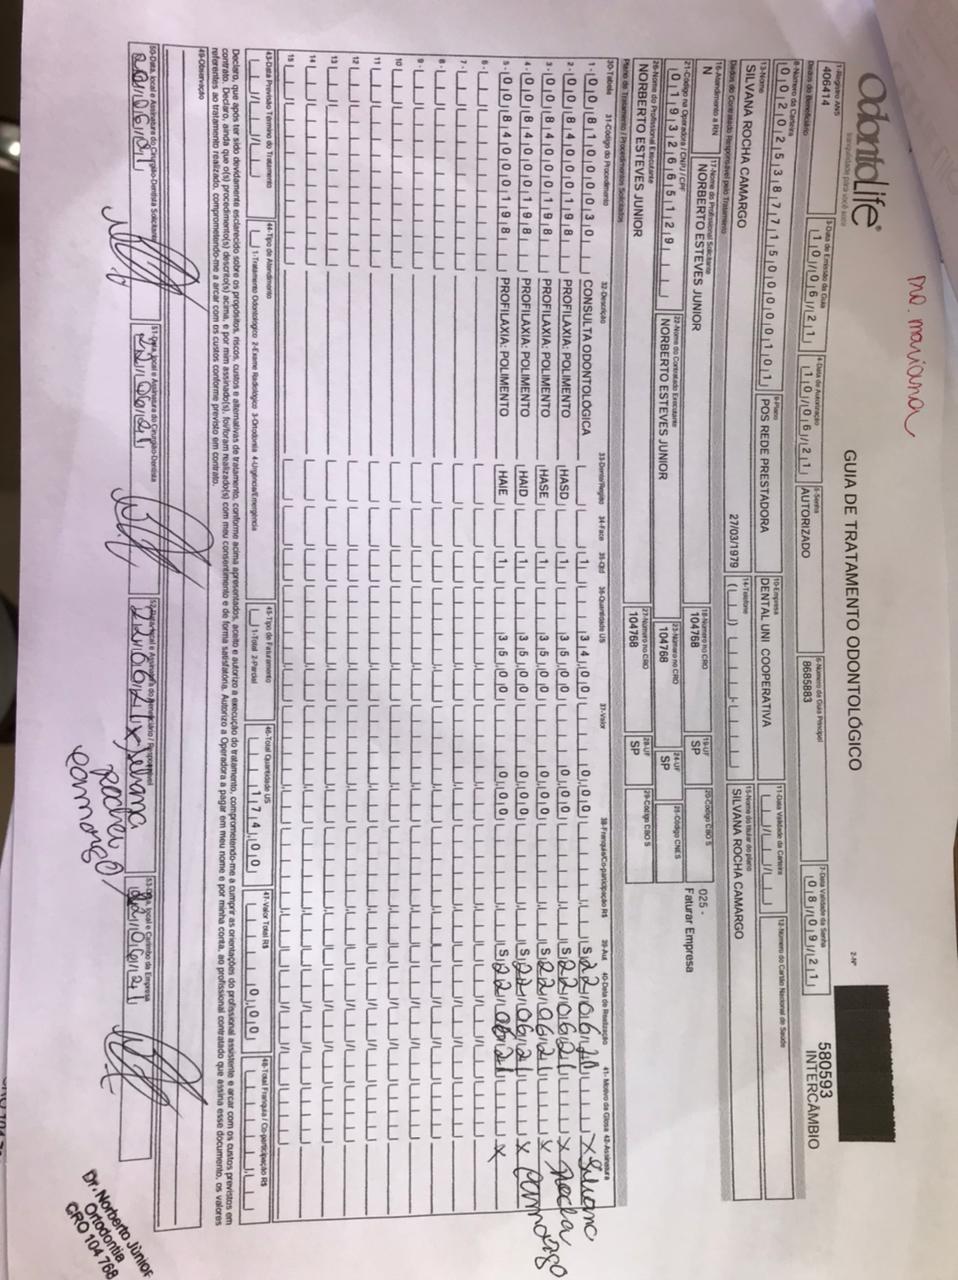 no. mariana
OdontoLife®
tranquilidade para você sorrir
GUIA DE TRATAMENTO ODONTOLÓGICO
2-Nº
580593
INTERCÂMBIO
1-Registro ANS
406414
3-Data de Emissão da Guia
10/06/21
4-Data de Autorização
10/06/21
5-Senha
AUTORIZADO
6-Número da Guia Principal
8685883
7-Data Validade da Senha
08/09/21
Dados do Beneficiário
8-Número da Carteira
9-Plano
POS REDE PRESTADORA
10-Empresa
DENTAL UNI COOPERATIVA
11-Data Validade da Carteira
12-Número do Cartão Nacional de Saúde
13-Nome
SILVANA ROCHA CAMARGO
27/03/1979
14-Telefone
15-Nome do titular do plano
SILVANA ROCHA CAMARGO
Dados do Contratado Responsável pelo Tratamento
16-Atendimento a RN
N
17-Nome do Profissional Solicitante
NORBERTO ESTEVES JUNIOR
18-Número no CRO
104768
19-UF
SP
20-Código CBO S
025 -
Faturar Empresa
21-Código na Operadora / CNPJ / CPF
01932665129
22-Nome do Contratado Executante
NORBERTO ESTEVES JUNIOR
23-Número no CRO
104768
24-UF
SP
25-Código CNES
26-Nome do Profissional Executante
NORBERTO ESTEVES JUNIOR
27-Número no CRO
104768
28-UF
SP
29-Código CBO S
Plano de Tratamento / Procedimentos Solicitados
30-Tabela 31-Código do Procedimento 32-Descrição 33-Dente/Região 34-Face 35-Qtd 36-Quantidade US 37-Valor 38-Franquia/Co-participação R$ 39-Aut 40-Data de Realização 41- Motivo da Glosa 42-Assinatura
1- 00 81000030 CONSULTA ODONTOLÓGICA 1 34,00 0,00 S 22/06/21 x Silvana
2- 00 84000198 PROFILAXIA: POLIMENTO HASD 1 35,00 0,00 S 22/06/21 x Rocha
3- 00 84000198 PROFILAXIA: POLIMENTO HASE 1 35,00 0,00 S 22/06/21 x Camargo
4- 00 84000198 PROFILAXIA: POLIMENTO HAID 1 35,00 0,00 S 22/06/21 x
5- 00 84000198 PROFILAXIA: POLIMENTO HAIE 1 35,00 0,00 S 22/06/21 x
6-
7-
8-
9-
10
11
12
13
14
15
43-Data Previsão Término do Tratamento
44-Tipo de Atendimento
1-Tratamento Odontológico 2-Exame Radiológico 3-Ortodontia 4-Urgência/Emergência
45-Tipo de Faturamento
1-Total 2-Parcial
46-Total Quantidade US
174,00
47-Valor Total R$
0,00
48-Total Franquia / Co-participação R$
Declaro, que após ter sido devidamente esclarecido sobre os propósitos, riscos, custos e alternativas de tratamento, conforme acima apresentados, aceito e autorizo a execução do tratamento, comprometendo-me a cumprir as orientações do profissional assistente e arcar com os custos previstos em
contrato. Declaro, ainda que o(s) procedimento(s) descrito(s) acima, e por mim assinado(s), foi/foram realizado(s) com meu consentimento e de forma satisfatória. Autorizo a Operadora a pagar em meu nome e por minha conta, ao profissional contratado que assina esse documento, os valores
referentes ao tratamento realizado, comprometendo-me a arcar com os custos conforme previsto em contrato.
49-Observação
50-Data, local e Assinatura do Cirurgião-Dentista Solicitante
22/06/21
51-Data, local e Assinatura do Cirurgião-Dentista
22/06/21
52-Data, local e Assinatura do Beneficiário / Responsável
22/06/21 x Silvana
Rocha
Camargo
53-Data, local e Carimbo da Empresa
22/06/21
Dr. Norberto Júnior
Ortodontia
CRO 104768